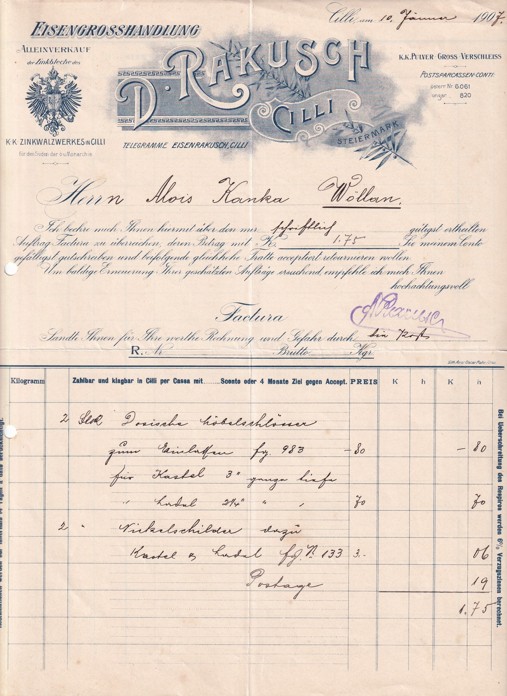 Cilli, am 10. Jänner 1907.
EISENGROSSHANDLUNG
ALLEINVERKAUF
der Zinkbleche des
K.K. ZINKWALZWERKES IN CILLI
D. RAKUSCH
CILLI
STEIERMARK
TELEGRAMME EISENRAKUSCH, CILLI
K.K. PULVER-GROSS-VERSCHLEISS
POSTSPARCASSEN-CONTI
österr. Nº 6061
ungar. " 820
Herrn Alois Kanka Wöllan.
Ich beehre mich Ihnen hiermit über den mir schriftlich gütigst ertheilten
Auftrag Factura zu überreichen, deren Betrag mit K 1.75 Sie meinem Conto
gefälligst gutschreiben und beifolgende gleichhohe Tratte acceptirt retourniren wollen.
Um baldige Erneuerung Ihrer geschätzten Aufträge ersuchend, empfehle ich mich Ihnen
hochachtungsvoll
Factura
Sandte Ihnen für Ihre werthe Rechnung und Gefahr durch die Post
R. Nr. Brutto Kgr.
Kilogramm Zahlbar und klagbar in Cilli per Cassa mit Sconto oder 4 Monate Ziel gegen Accept. PREIS K h K h
2 Stck Dosische Möbelschlösser
zum Einlassen fg. 983 -80 -80
für Kastel 3" ganze tiefe
" Ladel 2¼" " " 70 70
2 " Nickelschilder dazu
Kastel & Ladel fg. N. 133 3.- 06
Postage 19
1.75
Bei Ueberschreitung des Respiros werden 6% Verzugszinsen berechnet.